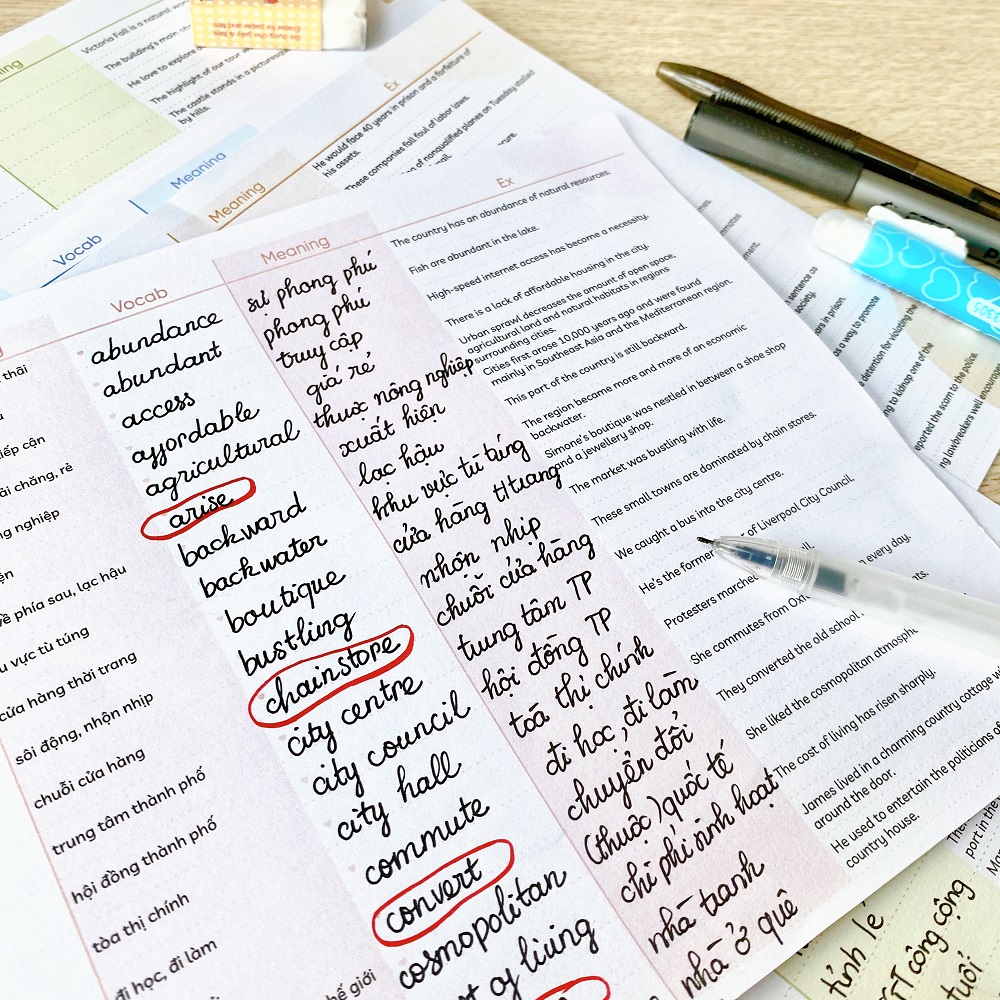 Sử dụng cho giấy & film
Victoria Fall is a natural
The building's main
He love to explore
The highlight of our tour
The castle stands in a picturesque
by hills.
Ex
He would face 40 years in prison and a forfeiture of
his assets.
These companies fall foul of labor laws.
of nonqualified planes on Tuesday
Meaning
Vocab
Meaning
Vocab
Meaning
Ex
abundance
abundant
access
affordable
agricultural
arise
backward
backwater
boutique
bustling
chain store
city centre
city council
city hall
commute
convert
cosmopolitan
of living
sự phong phú
phong phú
truy cập
giá rẻ
thuộc nông nghiệp
xuất hiện
lạc hậu
khu vực tù túng
cửa hàng t/trang
nhộn nhịp
chuỗi cửa hàng
trung tâm TP
hội đồng TP
toà thị chính
đi học, đi làm
chuyển đổi
(thuộc) quốc tế
chi phí sinh hoạt
nhà tranh
nhà ở quê
The country has an abundance of natural resources.
Fish are abundant in the lake.
High-speed internet access has become a necessity.
There is a lack of affordable housing in the city.
Urban sprawl decreases the amount of open space,
agricultural land and natural habitats in regions
surrounding cities.
Cities first arose 10,000 years ago and were found
mainly in Southeast Asia and the Mediterranean region.
This part of the country is still backward.
The region became more and more of an economic
backwater.
Simone's boutique was nestled in between a shoe shop
and a jewellery shop.
The market was bustling with life.
These small towns are dominated by chain stores.
We caught a bus into the city centre.
He's the former of Liverpool City Council.
Protesters marched
She commutes from every day.
They converted the old school
She liked the cosmopolitan
The cost of living has risen sharply.
James lived in a charming country cottage
around the door.
He used to entertain the politicians of
country house.
thái
tiếp cận
phải chăng, rẻ
nghiệp
về phía sau, lạc hậu
vực tù túng
cửa hàng thời trang
sôi động, nhộn nhịp
chuỗi cửa hàng
trung tâm thành phố
hội đồng thành phố
tòa thị chính
đi học, đi làm
thế giới
sentence as
society.
in prison.
as a way to promote
detention for violating the
to kidnap one of the
reported the scam to the police.
lawbreakers well
port in the
tỉnh lẻ
GT công cộng
tuổi